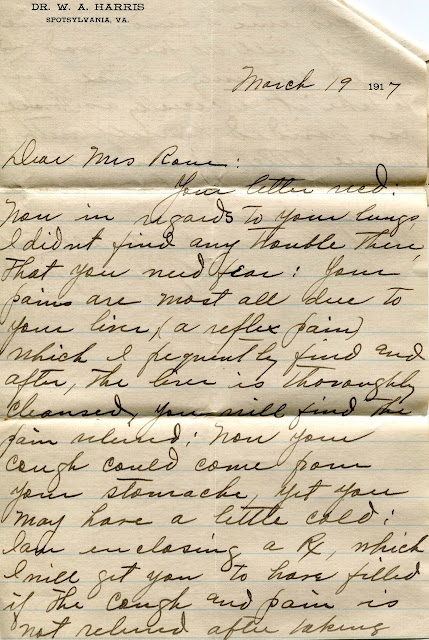 DR. W. A. HARRIS
SPOTSYLVANIA, VA.
March 19 1917
Dear Mrs Rowe:
Your letter recd:
Now in regards to your lungs,
I didnt find any trouble there,
that you need fear: Your
pains are most all due to
your liver, (a reflex pain)
which I frequently find and
after, the liver is thoroughly
cleansed, you will find the
pain relieved; Now your
cough could come from
your stomache, yet you
may have a little cold:
I am enclosing a Rx, which
I will get you to have filled
if the cough and pain is
not relieved after taking